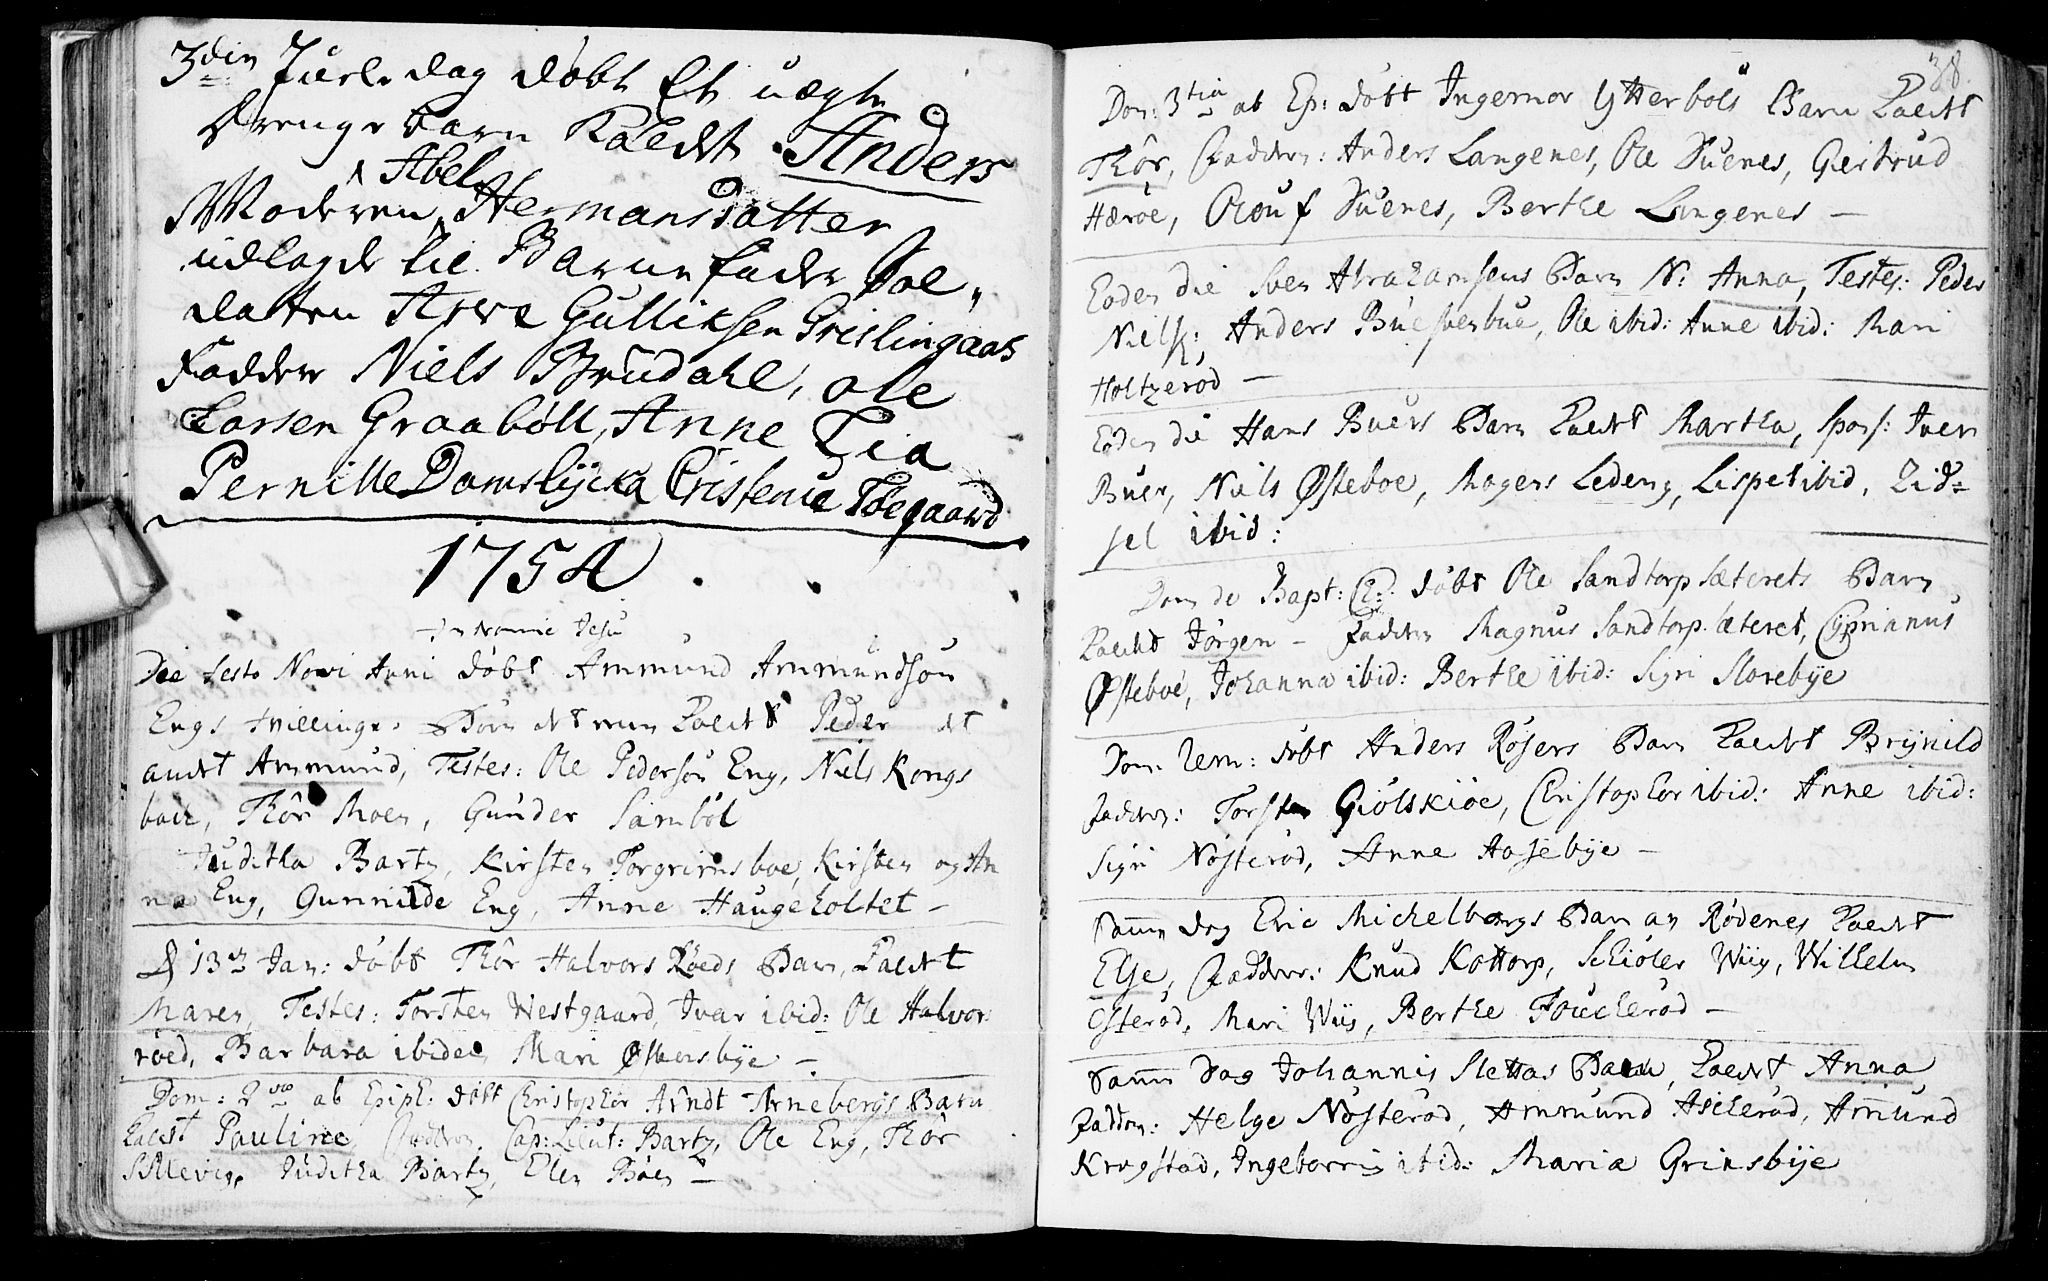 3die Juele dag døbt Et uægte
Drenge barn Kaldt Anders
Moderen Abel Hermansdatter
udlagde til Barne fader Sol„
daten Arve Gulliksen Grislingaas
Faddere Niels Brudahl, Ole
Larsen Graabøll, Anne Lia
Pernille Damslycka Cristence Toegaard
1754
In Nomine Jesu
Die festo Novi Anni døbt Ammund Ammundsøn
Engs tvillinge Børn det eene kaldt Peder det
andet Ammund, Testes: Ole Pedersøn Eng, Niels Kongs
, Thôr Moen, Gunder Sambøl
Juditha Bartz, Kirsten Torgrimsboe, Kirsten og An
na Eng, Gunnilde Eng, Anne Haugeholtet –
d 13de Jan: døbt Thôr Halvors Røeds Barn, kaldt
Maren, Testes: Torsten Westgaard, Ivar ibid: Ole Halvor
røed, Barbara ibidem Mari Østensbÿe –
Dom: 2da ab Epiph: døbt Christopher Arndt Arnebergs Barn
kaldt Pauline, Faddere, Cap: Lieut: Bartz, Ole Eng, Thôr
Sillevig, Juditha Bartz, Elen Bøen –
38.
Dom: 3tia ab Ep: døbt Ingemor Ytterbøls Barn kaldt
Thôr, Faddere: Anders Langenes, Ole Suenes, Gertrud
Hærøe, Olouf Suenes, Berthe Langenes –
Eodem die Sven Abrahamsens Barn N: Anna, Testes: Peder
Niels:, Anders Bue, Ole ibid: Anne ibid: Mari
Holtzerød –
Eodem die Hans Buers Barn kaldt Martha, spons: Iver
Buer, Niels Østeboe, Mogens Ledeng, Lispet ibid, Zid=
sel ibid:
Dom de Bapt: Ch: døbt Ole Sandtorp sæterets Barn
kaldt Jørgen – Faddere Magnus Sandtorp sæteret, Cyprianus
Østeboe, Johanna ibid: Berthe ibid: Sigri Slorebÿe
Dom: Rem: døbt Anders Røsers Barn kaldt Brÿnild
Faddere: Torsten Giølskiøe, Christopher ibid: Anne ibid:
Sigri Nøsterød, Anne Aasebÿe –
Samme dag Eric Michelborgs Barn af Rødenes kaldt
Else, Faddere: Knud Kottorp, Schiøler Wiig, Wilhelm
Østerød, Mari Wiig, Berthe Foucherød –
Samme dag Johannis Slettas Barn, kaldt Anna
Faddere: Helge Nøsterød, Ammund Asckerød, Amund
Krogstad, Ingeborri ibid: Maria Griksbÿe